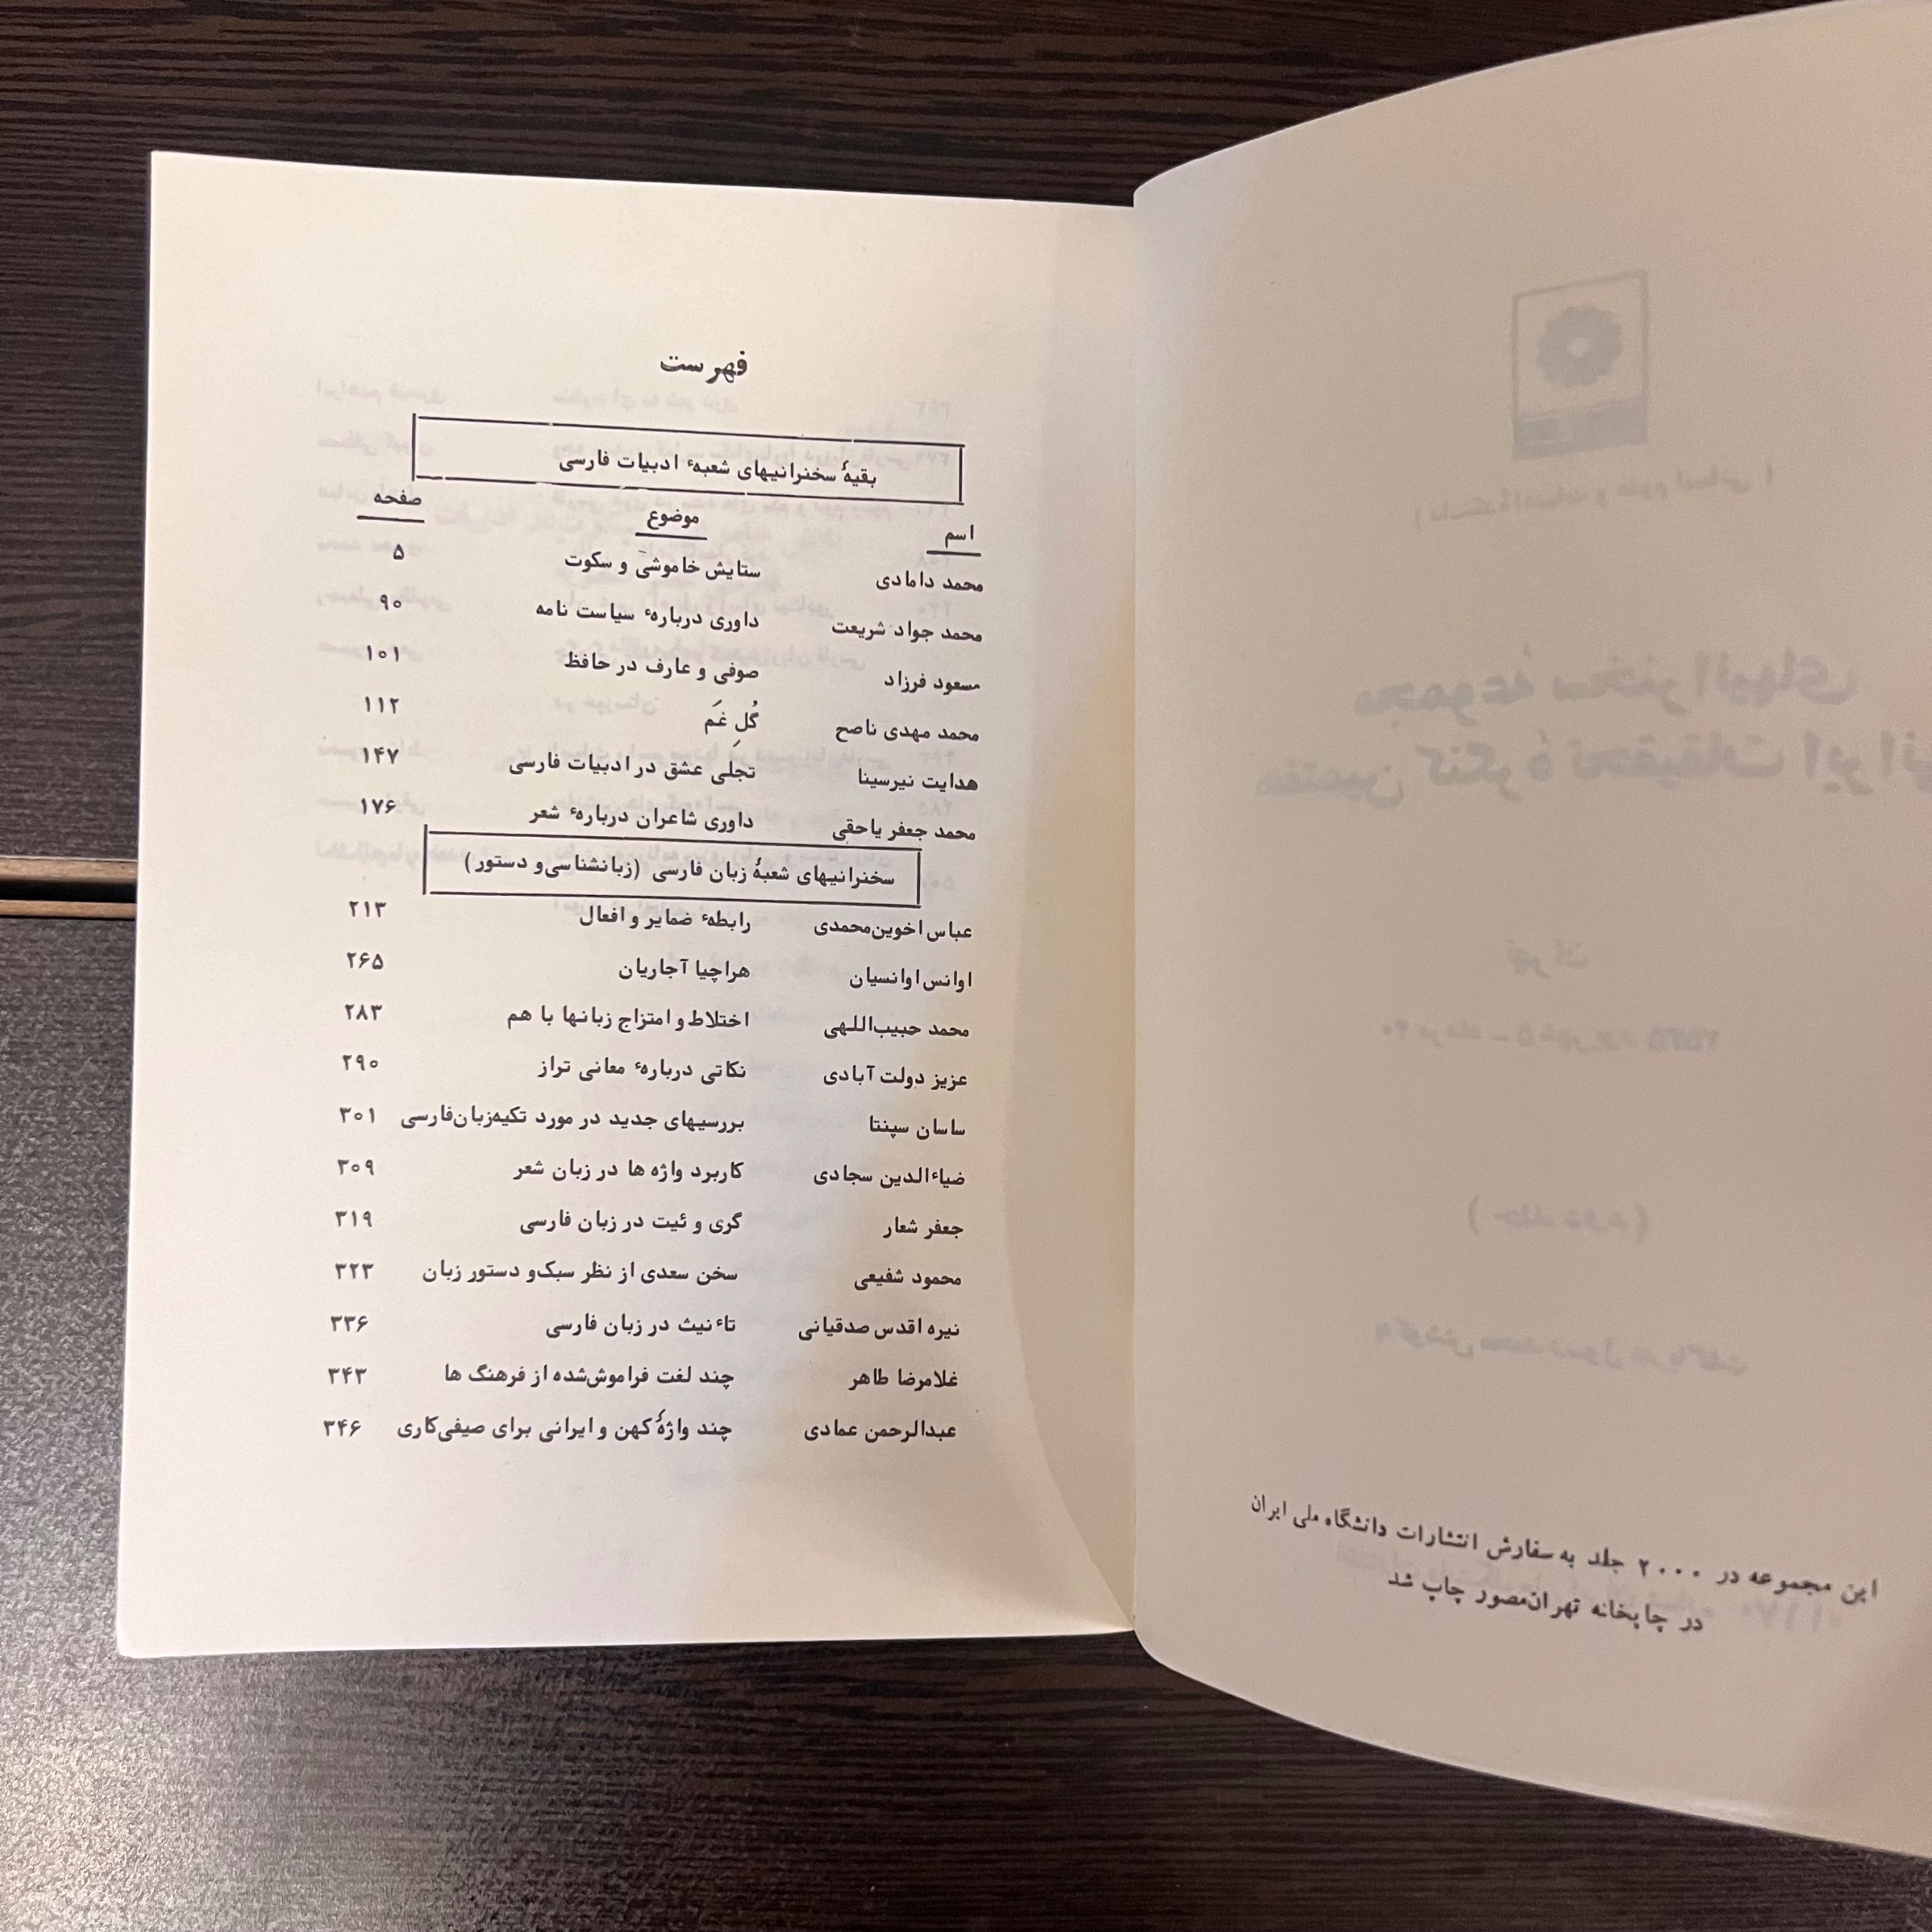 این مجموعه در ۲۰۰۰ جلد به سفارش انتشارات دانشگاه ملی ایران
در چاپخانه تهران‌مصور چاپ شد
فهرست
بقیهٔ سخنرانیهای شعبهء ادبیات فارسی
اسم موضوع صفحه
محمد دامادی ستایش خاموشی و سکوت ۵
محمد جواد شریعت داوری دربارهء سیاست نامه ۹۰
مسعود فرزاد صوفی و عارف در حافظ ۱۰۱
محمد مهدی ناصح گُلِ غَم ۱۱۲
هدایت نیرسینا تجلّی عشق در ادبیات فارسی ۱۴۷
محمد جعفر یاحقی داوری شاعران دربارهء شعر ۱۷۶
سخنرانیهای شعبهٔ زبان فارسی (زبانشناسی و دستور)
عباس اخوین‌محمدی رابطهء ضمایر و افعال ۲۱۳
اوانس اوانسیان هراچیا آجاریان ۲۶۵
محمد حبیب‌اللهی اختلاط و امتزاج زبانها با هم ۲۸۳
عزیز دولت آبادی نکاتی دربارهء معانی تراز ۲۹۰
ساسان سپنتا بررسیهای جدید در مورد تکیه‌زبان‌فارسی ۳۰۱
ضیاءالدین سجادی کاربرد واژه ها در زبان شعر ۳۰۹
جعفر شعار گری و ئیت در زبان فارسی ۳۱۹
محمود شفیعی سخن سعدی از نظر سبک‌و دستور زبان ۳۲۳
نیره اقدس صدقیانی تاءنیث در زبان فارسی ۳۳۶
غلامرضا طاهر چند لغت فراموش‌شده از فرهنگ ها ۳۴۳
عبدالرحمن عمادی چند واژهٔ کهن و ایرانی برای صیفی‌کاری ۳۴۶